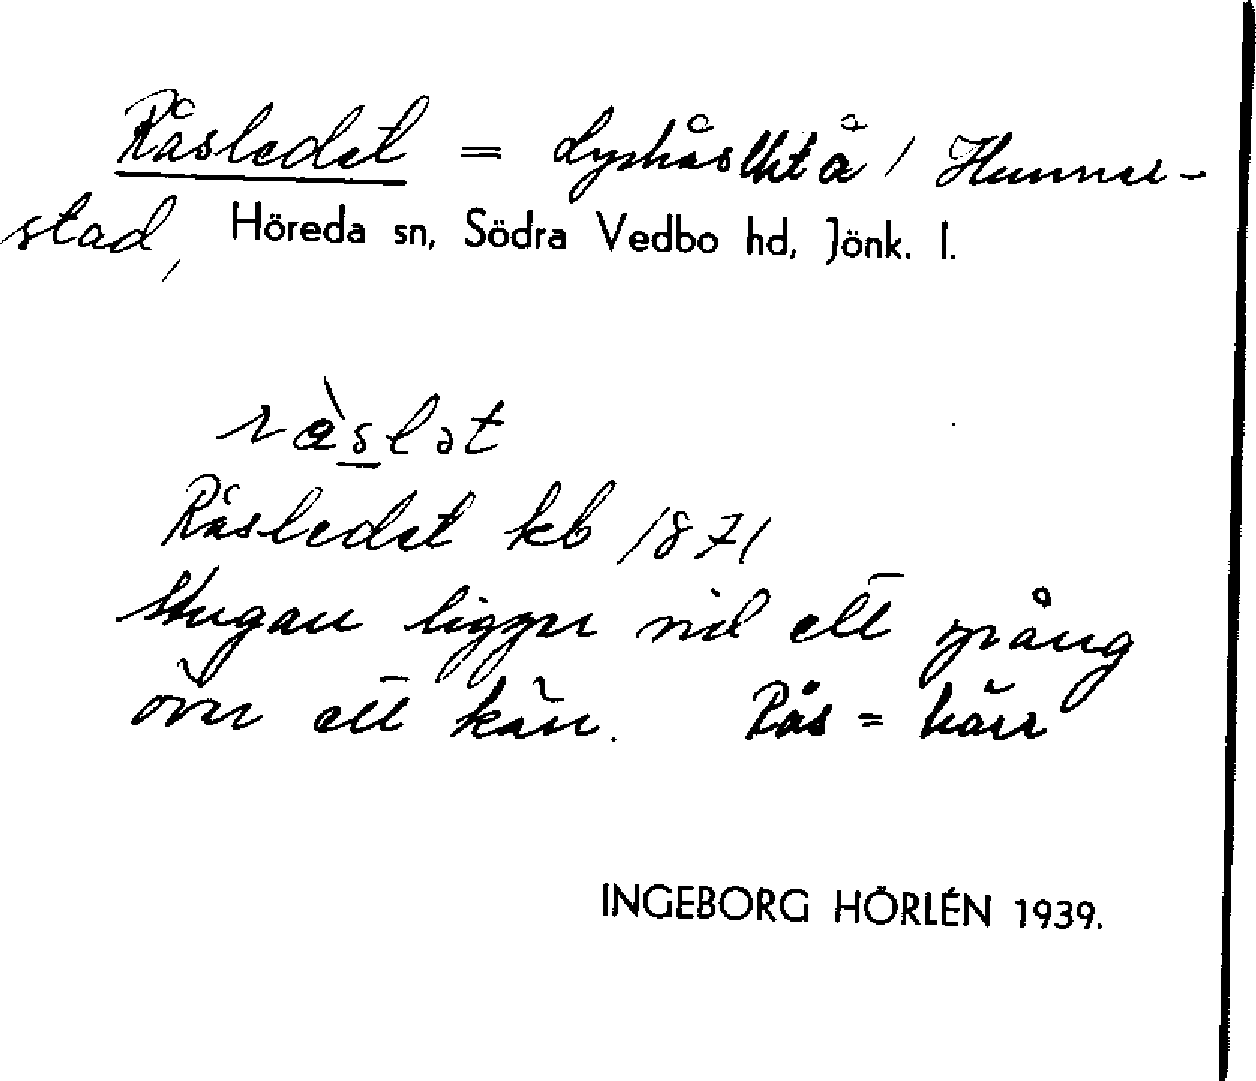 Råsledet = Lyshåslht å / Hunnu-
stad, Höreda sn, Södra Vedbo hd, Jönk. l.
ràslət
Råsledet kb 1871
Stugan ligger vid ett spång
över ett kärr. Rås = kärr
INGEBORG HÖRLÉN 1939.